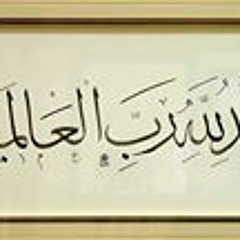 دُ لِلَّهِ رَبِّ العَالَمـ